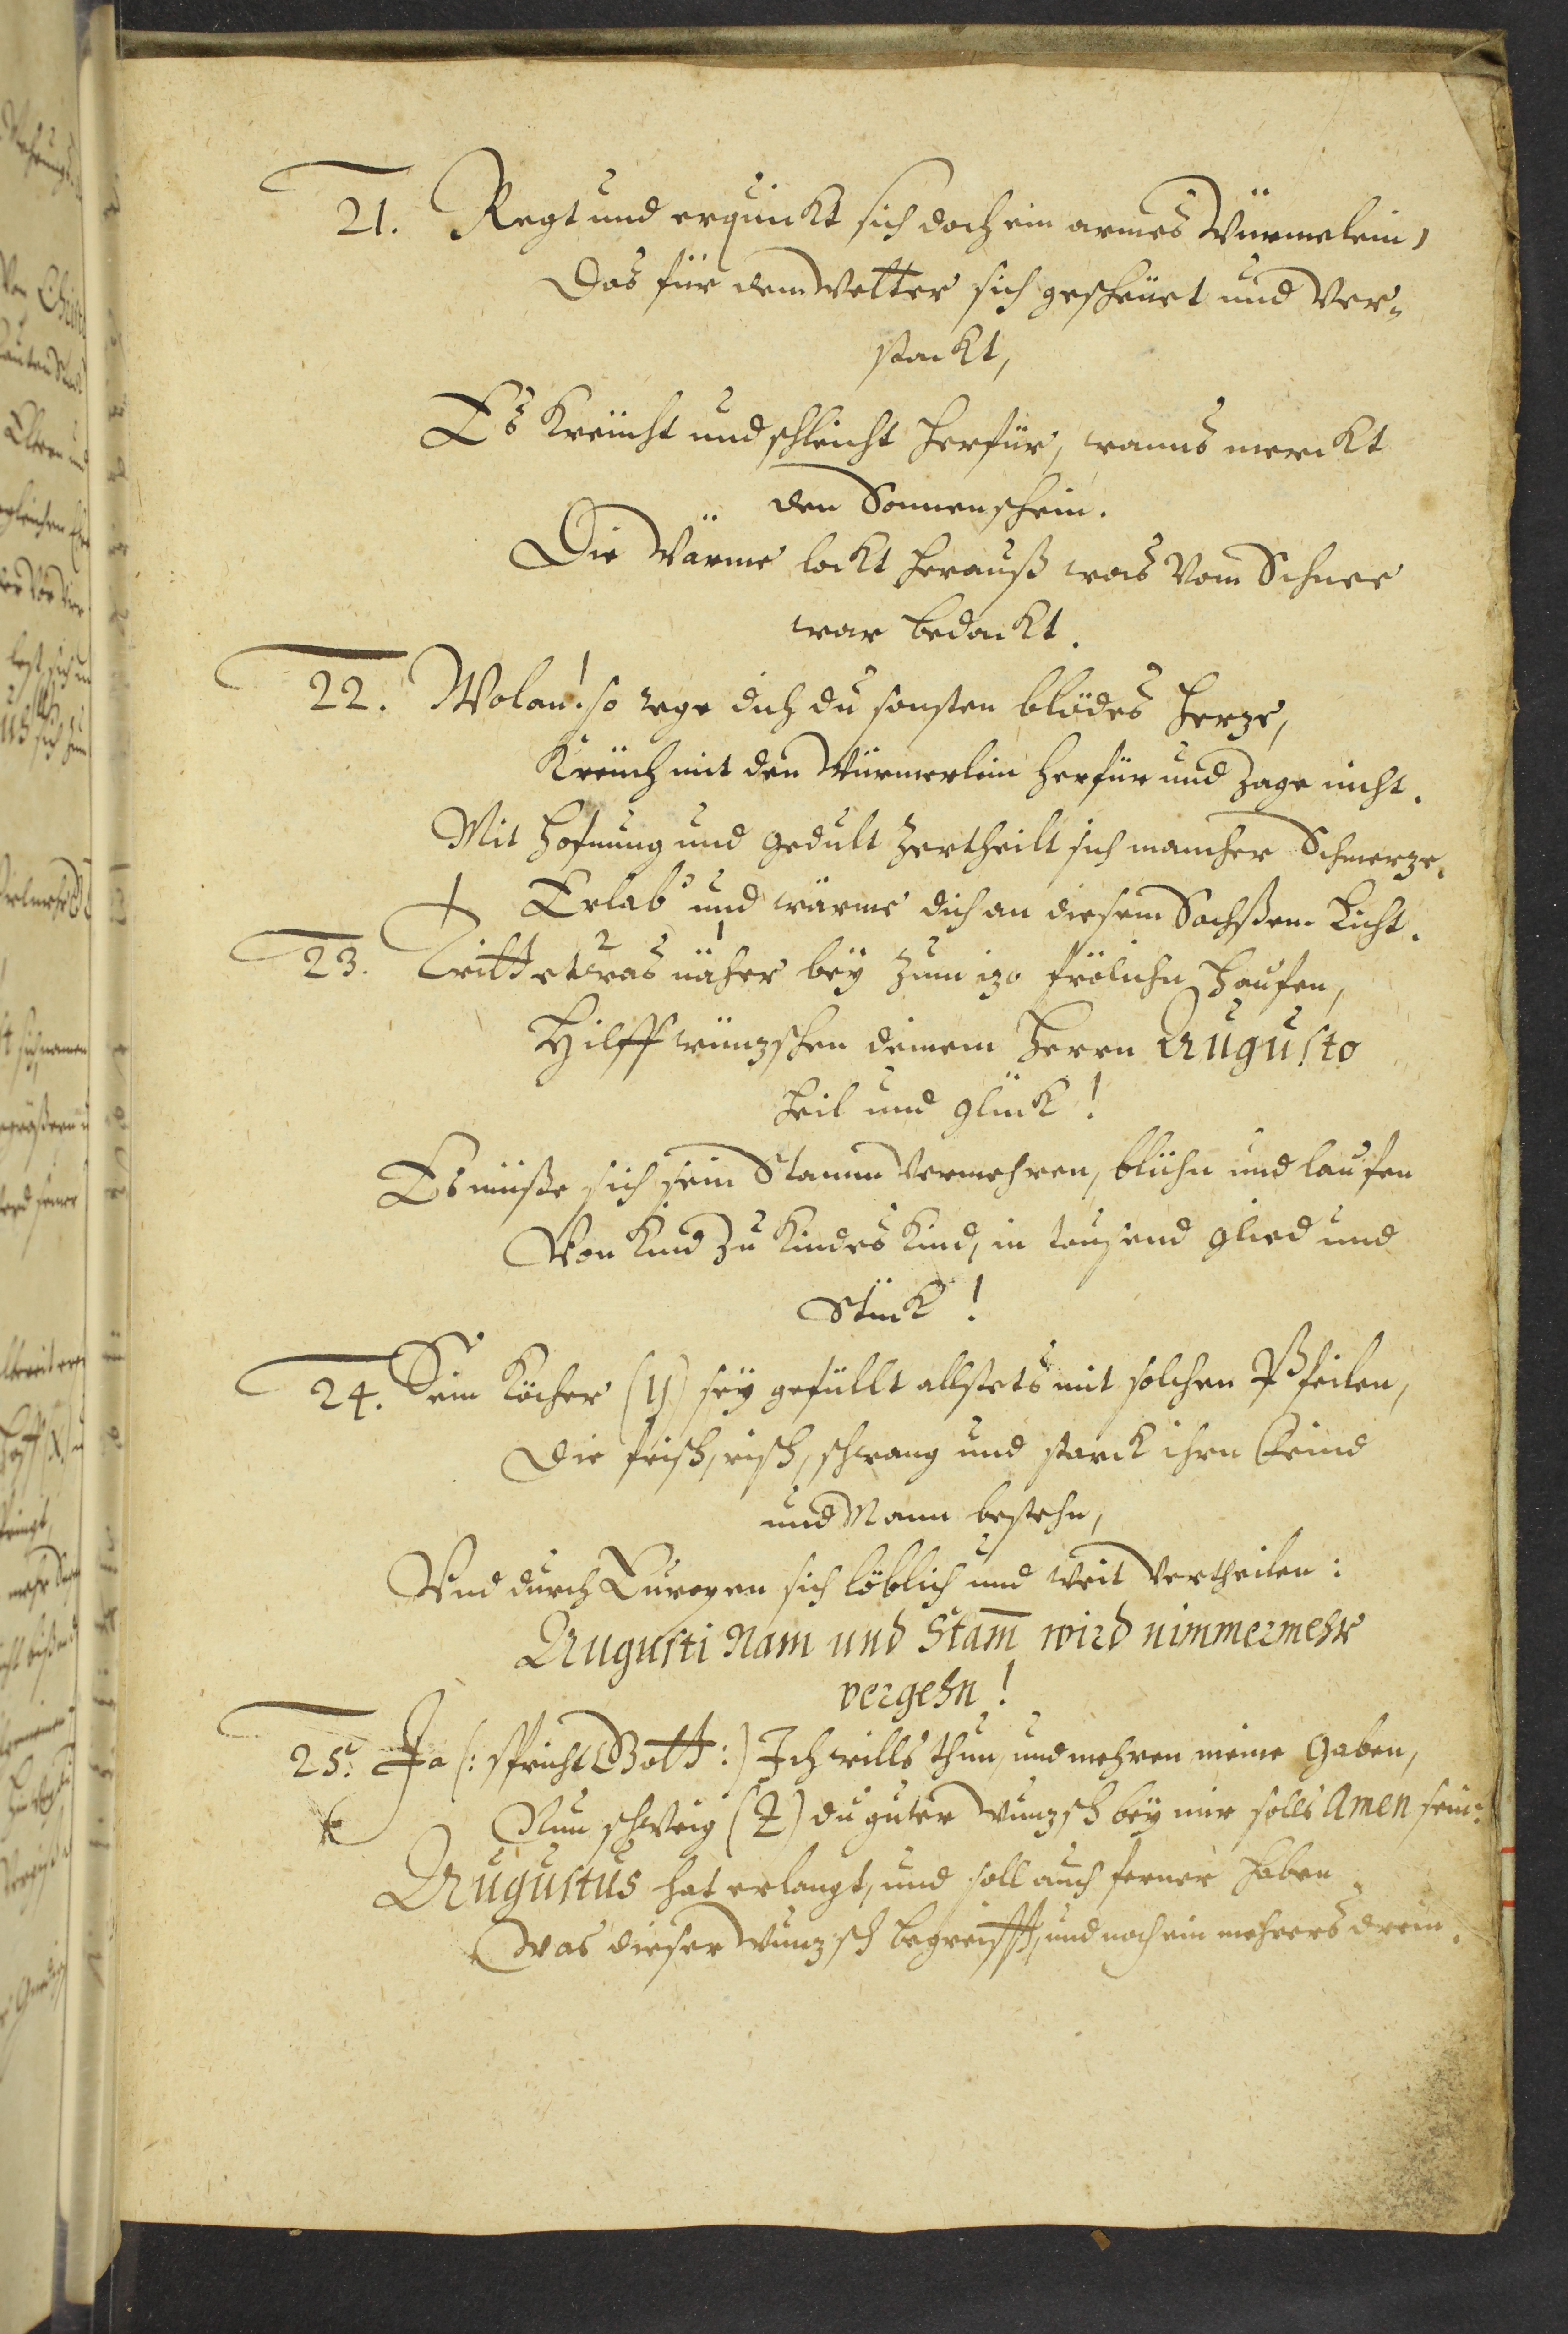 21. Regt und erquickt sich doch ein armes Würmelein,
Das für dem Wetter sich gescheüet und ver-
steckt,
Es kreücht und schleicht herfür, wanns merckt
den Sonnenschein.
Die Wärme lockt herauß was vom Schnee
war bedeckt.
22. Wolan! so rege dich du sonsten blödes Herze,
Kreüch mit den Würmerlein herfür und zage nicht.
Mit Hofnung und Gedult zertheilt sich mancher Schmerze.
Erlab und wärme dich an diesem Sachßen Licht.
23. Tritt etwas näher bëy zum izo frölichn Haufen,
Hilff wünzschen deinem Herrn Augusto
Heil und Glück!
Es müsse sich sein Stamm vermehren, blühn und laufen
Von Kind zu Kindes Kind, in tausend Glied und
Stück!
24. Sein Köcher (y) seÿ gefüllt allstets mit solchen Pfeilen,
Die frisch, risch, schwang und starck ihrn Feind
und Mann bestehn,
Und durch Europen sich löblich und weit vertheilen:
Augusti Nam und Stam̄ wird nimmermehr
vergehn!
25. Ja (: spricht Gott :) Ich wills thun, und mehren meine Gaben,
Nun schweig (z) du guter Wunzsch beÿ mir solls Amen sein:
Augustus hat erlangt, und soll auch ferner haben
Was dieser Wunzsch begreifft, und noch ein mehrers drein.